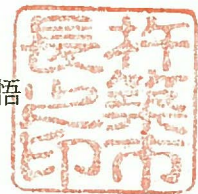 悟
杵築市
長之印